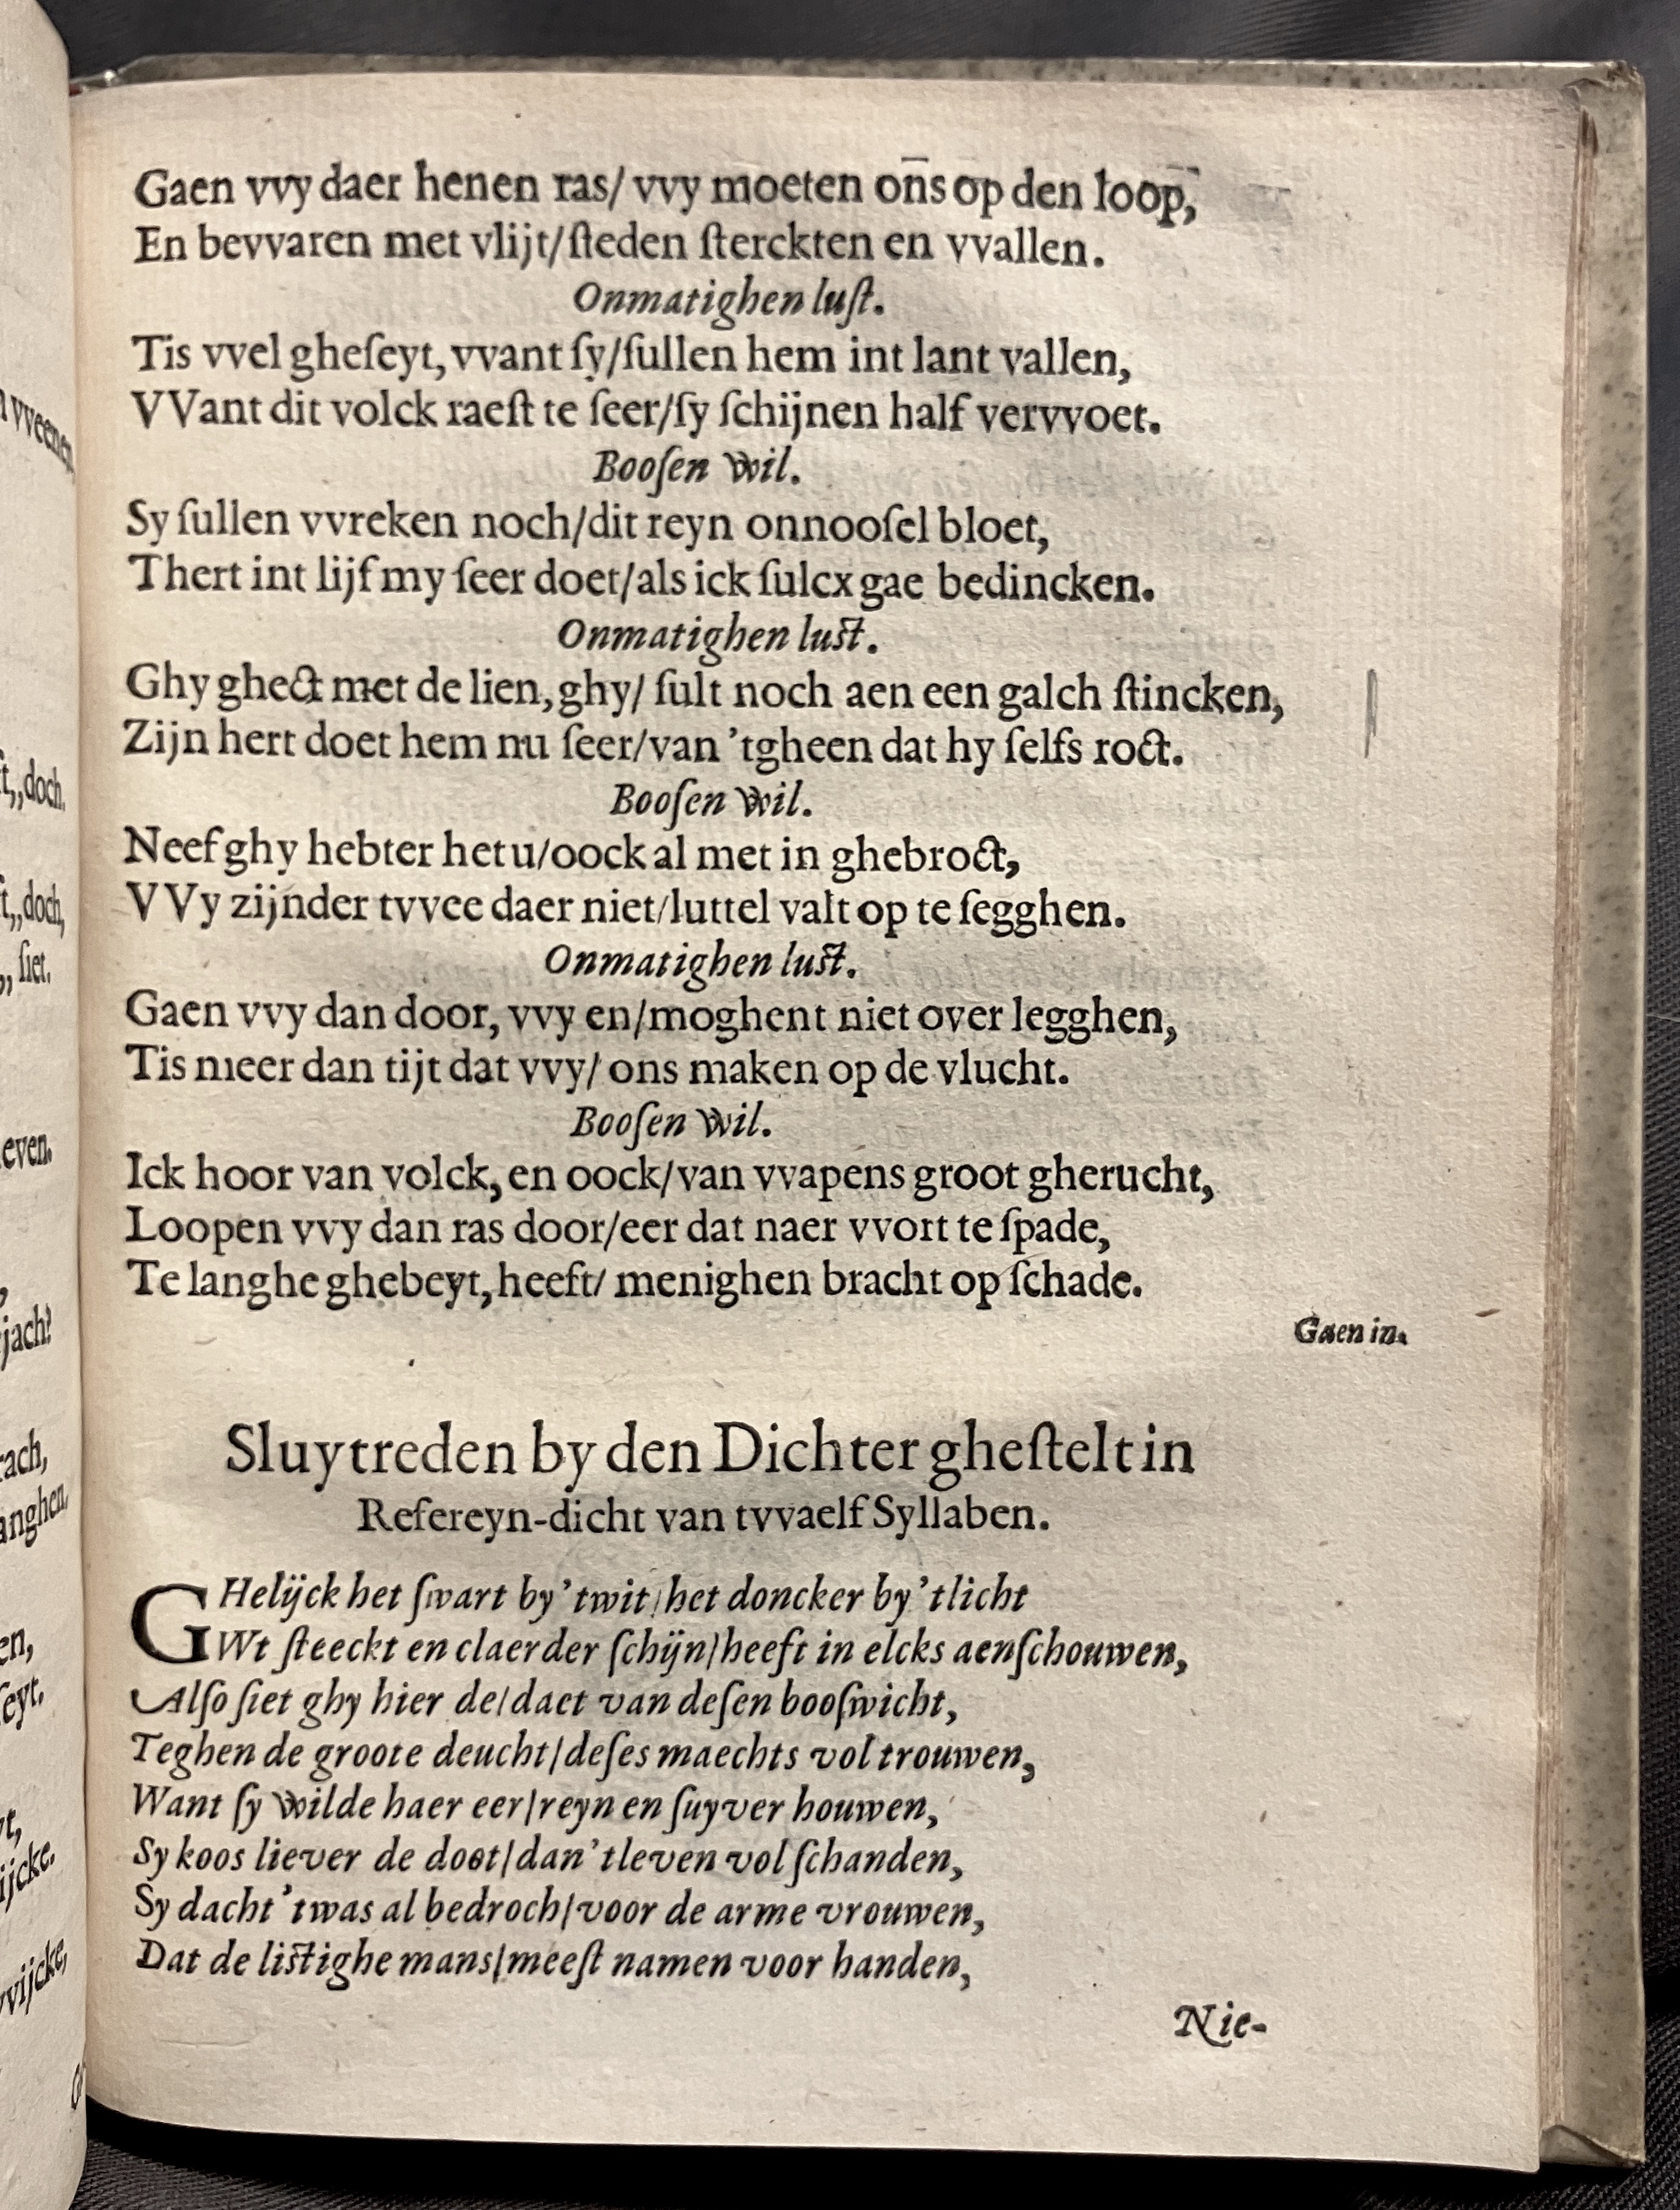 Gaen vvy daer henen ras/ vvy moeten ons op den loop,
En bevvaren met vlijt/ſteden ſterckten en vvallen.
Onmatighen luſt.
Tis vvel gheſeyt, vvant ſy/ſullen hem int lant vallen,
VVant dit volck raeſt te ſeer/ſy ſchijnen half vervvoet.
Booſen Wil.
Sy ſullen vvreken noch/dit reyn onnooſel bloet,
Thert int lijf my ſeer doet/als ick ſulcx gae bedincken.
Onmatighen luſt.
Ghy ghect met de lien, ghy/ ſult noch aen een galch ſtincken,
Zijn hert doet hem nu ſeer/van ’tgheen dat hy ſelfs roct.
Booſen Wil.
Neef ghy hebter het u/oock al met in ghebroct,
VVy zijnder tvvee daer niet/luttel valt op te ſegghen.
Onmatighen luſt.
Gaen vvy dan door, vvy en/moghent niet over legghen,
Tis meer dan tijt dat vvy/ ons maken op de vlucht.
Booſen Wil.
Ick hoor van volck, en oock/van vvapens groot gherucht,
Loopen vvy dan ras door/eer dat naer vvort te ſpade,
Te langhe ghebeyt, heeft/ menighen bracht op ſchade.
Gaen in.
Sluytreden by den Dichter gheſtelt in
Refereyn-dicht van tvvaelf Syllaben.
GHelijck het ſwart by ’twit/het doncker by ’tlicht
Wt ſteeckt en claerder ſchijn/heeft in elcks aenſchouwen,
Alſo ſiet ghy hier de/daet van deſen booſwicht,
Teghen de groote deucht/deſes maechts vol trouwen,
Want ſy wilde haer eer/reyn en ſuyver houwen,
Sy koos liever de doot/dan ’tleven vol ſchanden,
Sy dacht ’twas al bedroch/voor de arme vrouwen,
Dat de liſtighe mans/meeſt namen voor handen,
Nie-
vveenen
t,,doch,
t,,doch,
,, ſiet.
even.
jach!
rach,
anghen,
en,
ſeyt,
ijcke.
vvijcke,